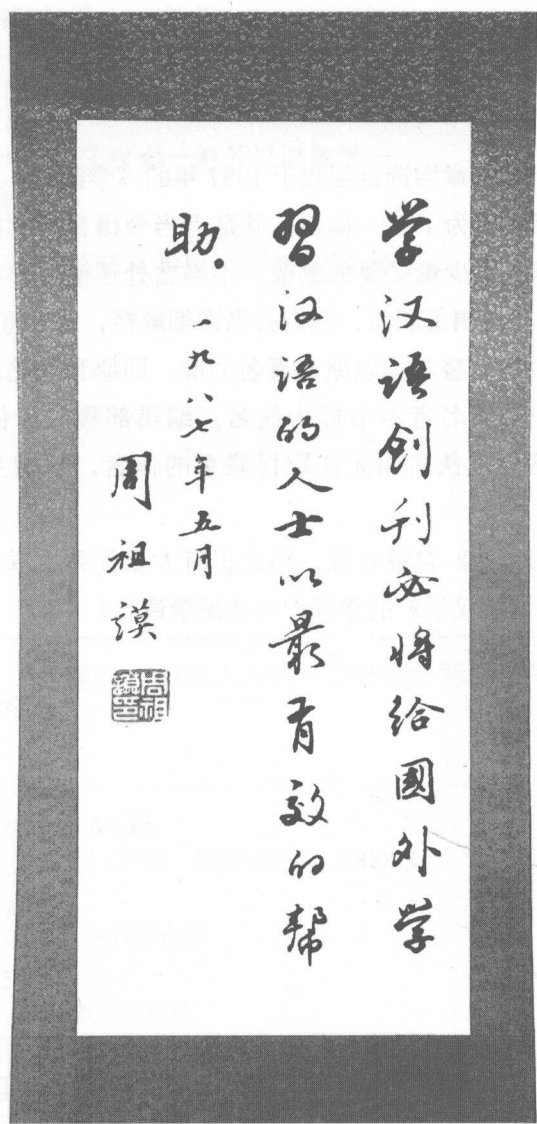 学汉语创刊必将给國外学
習汉语的人士以最有效的帮
助。
一九八七年五月
周祖謨
周祖謨印